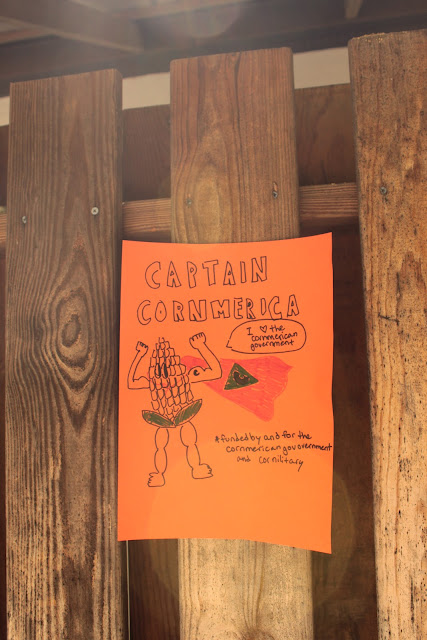 CAPTAIN
CORNMERICA
I ♡ the
cornmerican
government
*funded by and for the
cornmerican gouvernment
and cornilitary